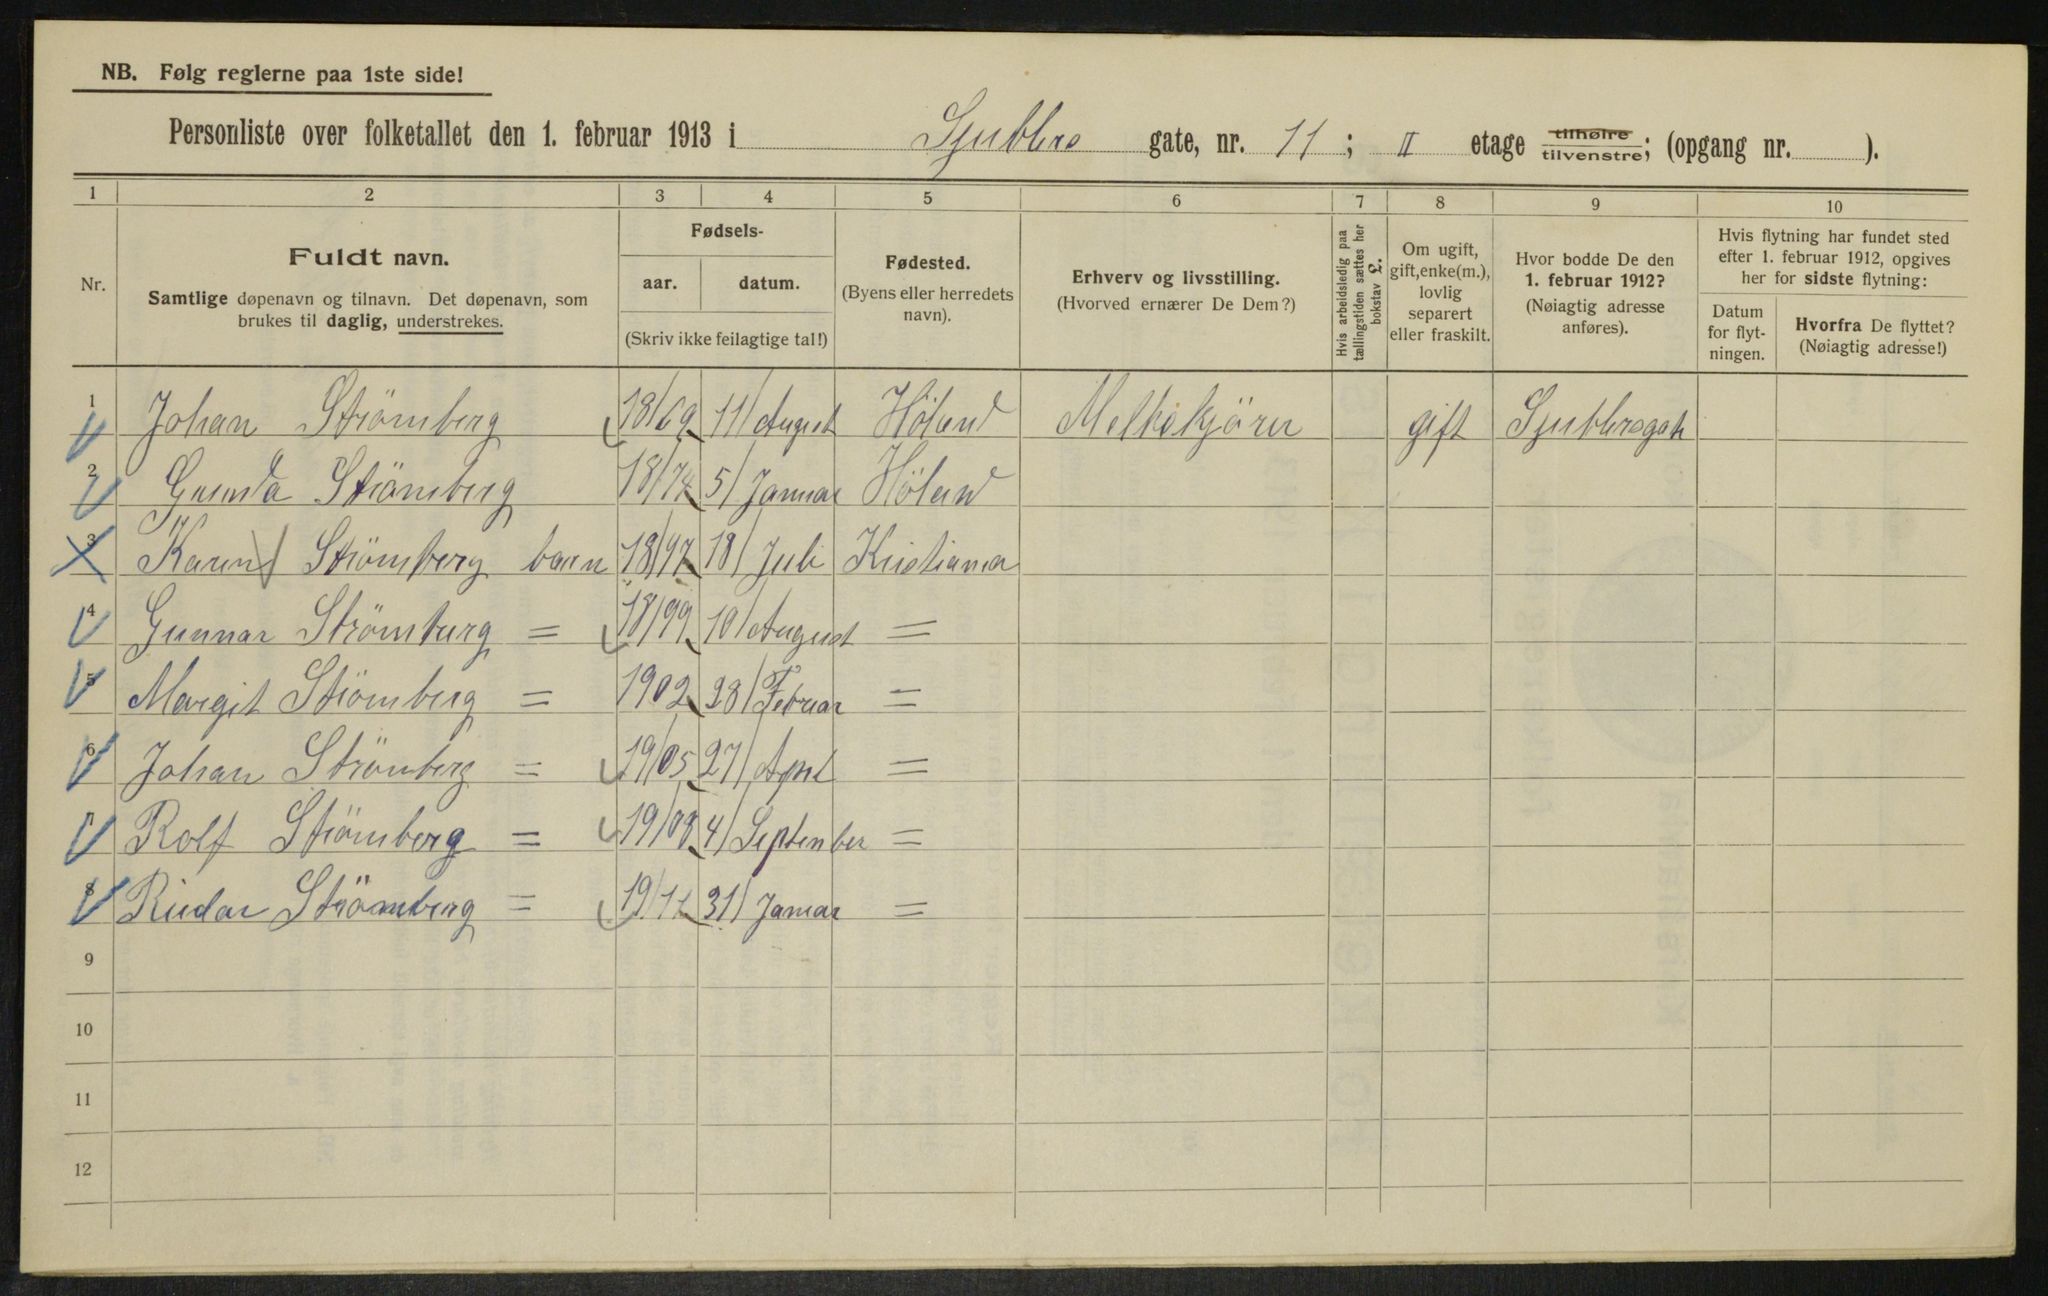 NB. Følg reglerne paa 1ste side!
Personliste over folketallet den 1. februar 1913 i Sjublers gate, nr. 11; II etage tilhøire tilvenstre; (opgang nr. ).
1 2 3 4 5 6 7 8 9 10
Nr.
Fuldt navn.
Samtlige døpenavn og tilnavn. Det døpenavn, som
brukes til daglig, understrekes.
Fødsels-
aar. datum.
(Skriv ikke feilagtige tal!)
Fødested.
(Byens eller herredets
navn).
Erhverv og livsstilling.
(Hvorved ernærer De Dem?)
Hvis arbeidsledig paa
tællingstiden sættes her
bokstav L.
Om ugift,
gift, enke(m.),
lovlig
separert
eller fraskilt.
Hvor bodde De den
1. februar 1912?
(Nøiagtig adresse
anføres).
Hvis flytning har fundet sted
efter 1. februar 1912, opgives
her for sidste flytning:
Datum
for flyt-
ningen.
Hvorfra De flyttet?
(Nøiagtig adresse!)
1 Johan Strömberg 18/69 11/August Höland Melkekjörer gift Sjublersgate
2 Gunda Strömberg 18/74 5/Januar Höland
3 Karen Strömberg barn 18/97 18/Juli Kristiania
4 Gunnar Strömberg = 18/99 10/August =
5 Margit Strömberg = 1902 28/Februar =
6 Johan Strömberg = 19/05 27/April =
7 Rolf Strömberg = 19/08 4/September =
8 Reidar Strömberg = 19/11 31/Januar =
9
10
11
12